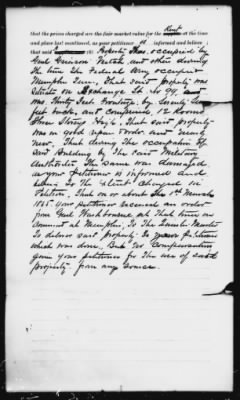 that the prices charged are the fair market value for the Rent at the time
and place last mentioned, as your petitioner is informed and believes
that said Property was occupied by
Genl and other during
the time the Federal Army occupied
Memphis Tenn. That said property was
situate on Exchange St. No 99, and
was thirty feet frontage, by seventy
feet back, and comprised 12 Rooms
three story high, that said property
was in good repair & order and nearly
new, That during the occupation of
and holding by the said Military
Authorities the same was damaged
as your petitioner is informed and
believes to the extent charged in
Petition, that on or about the 1st March
1865 your petitioner received an order
from Genl Washbourne at that time in
Command at Memphis, to the Quarter Master
to deliver said property to your petitioner
which was done, But no Compensation
given your petitioner for the use of said
property from any source.